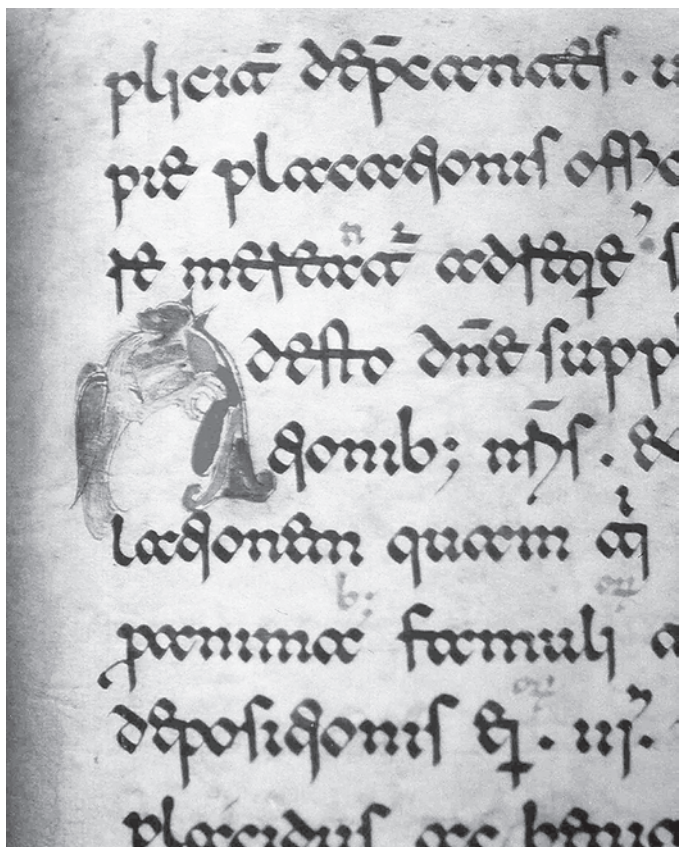 pliciť dep̄cantes . u
pie placationis off
re mereat̃ adseque s
Adesto dñe supp
tionib; nr̄s . &
lationem quam
p anima famuli
depositionis ei . iii .
placidus ac benig